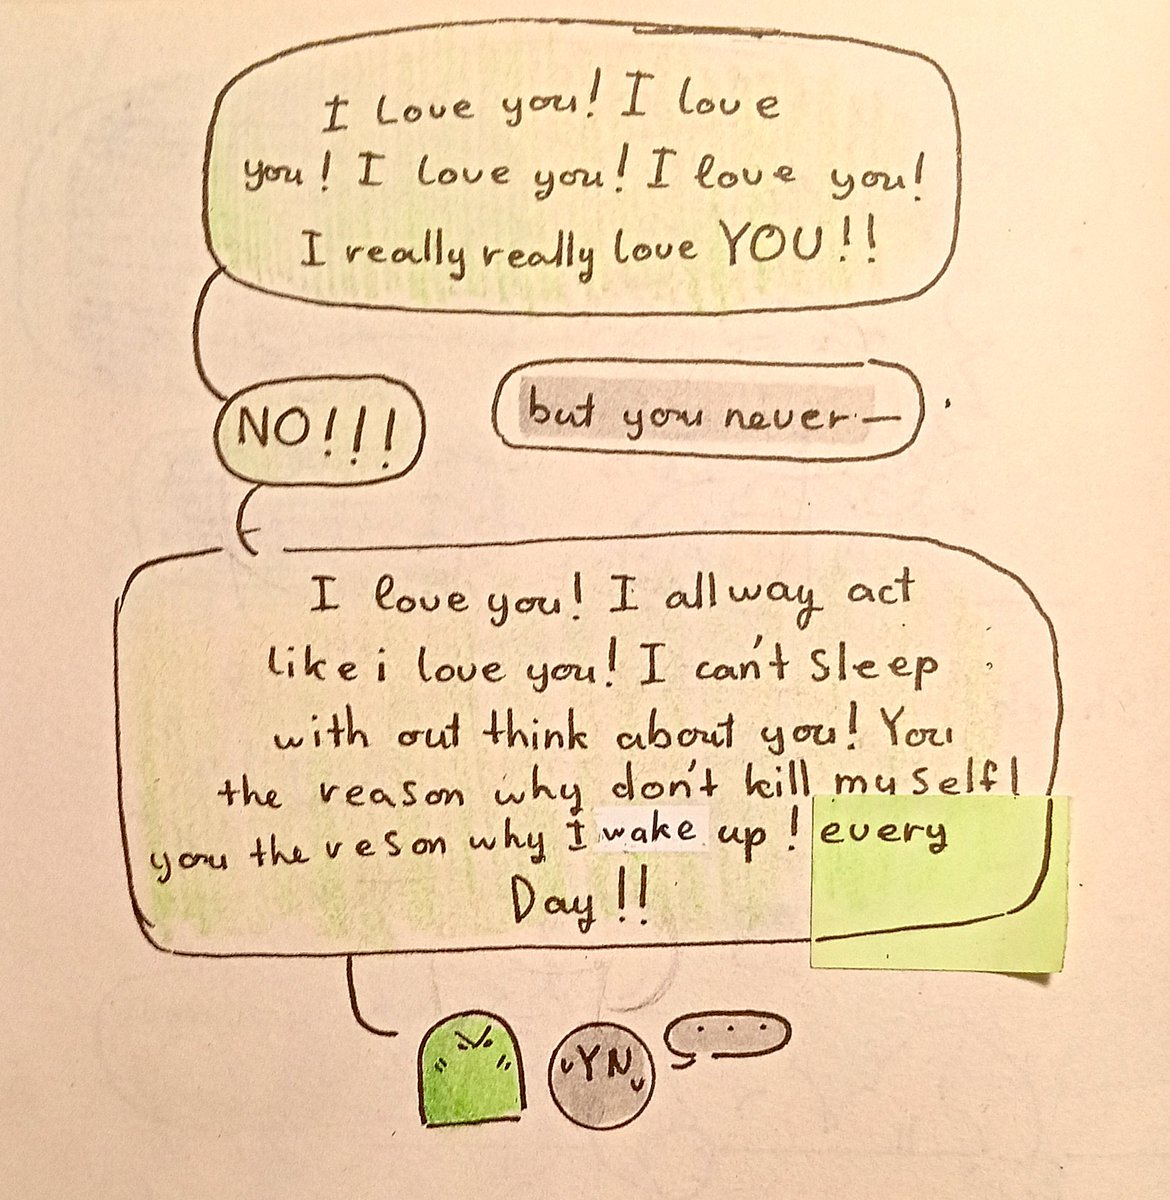 I Love you! I love
you! I love you! I love you!
I really really love YOU!!
NO!!!
but you never—
I love you! I allway act
like i love you! I can't sleep
with out think about you! You
the reason why don't kill myself!
you the reson why I wake up! every
Day!!
...
YN